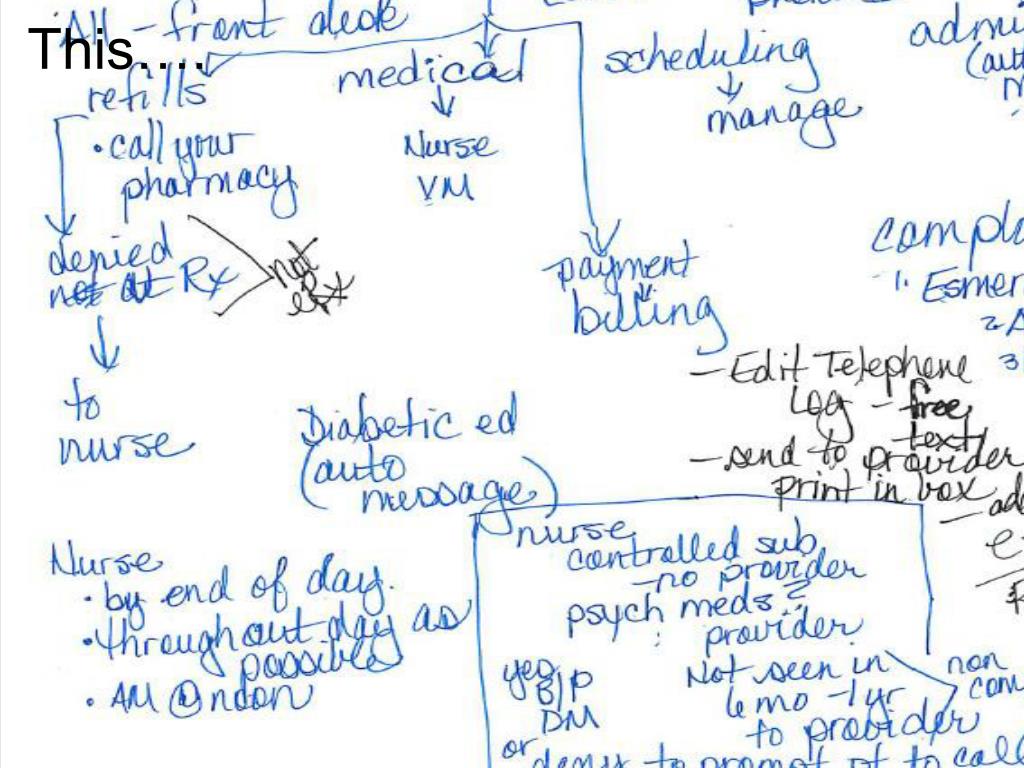 This....
- front desk
refills
• call your
pharmacy
denied
not at Rx
not
to
nurse
medical
Nurse
VM
scheduling
manage
payment
billing
- Edit Telephone
Log - free
text
- send to provider
print in box
Diabetic ed
(auto
message)
Nurse
• by end of day.
• throughout day as
possible
• AM @ noon
nurse
controlled sub
- no provider
psych meds ?
provider
yes B/P
DM
or
Not seen in
6 mo - 1 yr
to provider
non
deny to prompt pt to call
1.
2.
3